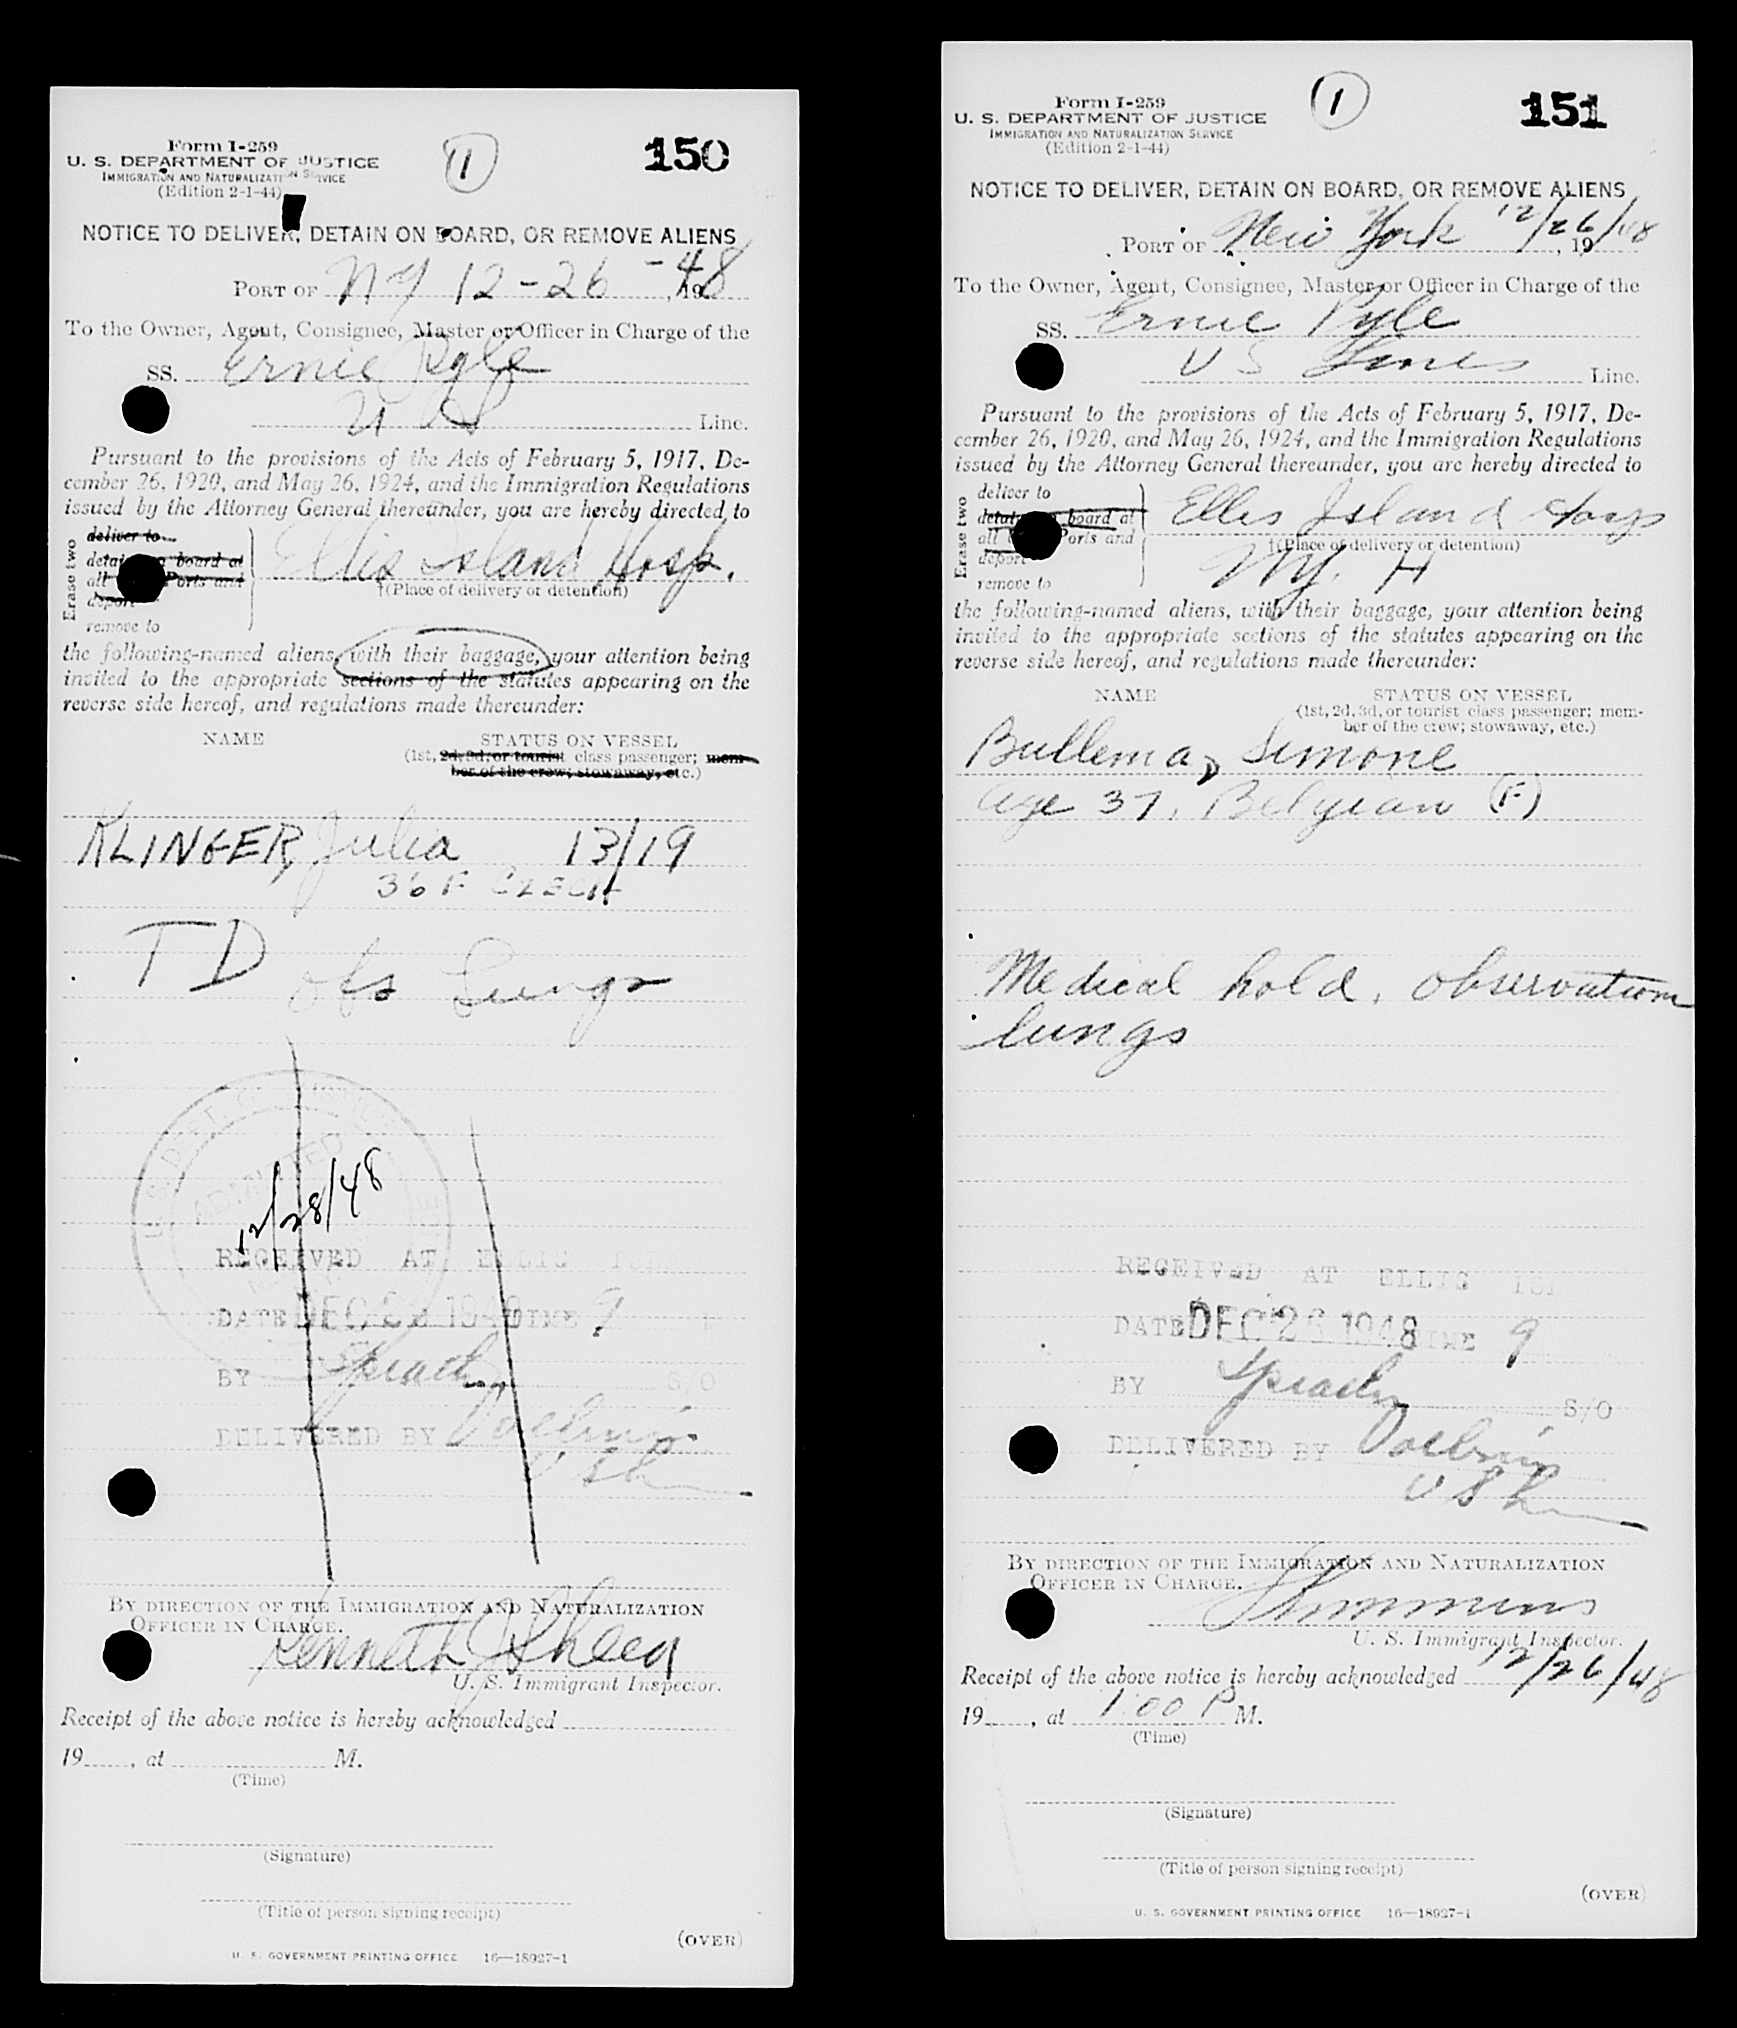 Form I-259
U. S. DEPARTMENT OF JUSTICE
IMMIGRATION AND NATURALIZATION SERVICE
(Edition 2-1-44)
11
150
NOTICE TO DELIVER, DETAIN ON BOARD, OR REMOVE ALIENS
PORT OF NY 12-26-48, 19
To the Owner, Agent, Consignee, Master or Officer in Charge of the
SS. Ernie Pyle
U S Line.
Pursuant to the provisions of the Acts of February 5, 1917, De-
cember 26, 1920, and May 26, 1924, and the Immigration Regulations
issued by the Attorney General thereunder, you are hereby directed to
Erase two
deliver to
detain on board at
all Ports and
deport
remove to
Ellis Island Hosp.
†(Place of delivery or detention)
the following-named aliens, with their baggage, your attention being
invited to the appropriate sections of the statutes appearing on the
reverse side hereof, and regulations made thereunder:
NAME STATUS ON VESSEL
(1st, 2d, 3d, or tourist class passenger; mem-
ber of the crew; stowaway, etc.)
KLINGER, Julia 13/19
36 F CZECH
TD obs Lungs
ADMITTED
12/28/48
RECEIVED AT ELLIS ISL
DATE DEC 26 1948 TIME 9
BY S/O
DELIVERED BY
BY DIRECTION OF THE IMMIGRATION AND NATURALIZATION
OFFICER IN CHARGE.
Kenneth J Shea
U. S. Immigrant Inspector.
Receipt of the above notice is hereby acknowledged
19 , at M.
(Time)
(Signature)
(Title of person signing receipt)
(OVER)
U. S. GOVERNMENT PRINTING OFFICE 16—18927-1
Form I-259
U. S. DEPARTMENT OF JUSTICE
IMMIGRATION AND NATURALIZATION SERVICE
(Edition 2-1-44)
1
151
NOTICE TO DELIVER, DETAIN ON BOARD, OR REMOVE ALIENS
PORT OF New York 12/26/48, 19
To the Owner, Agent, Consignee, Master or Officer in Charge of the
SS. Ernie Pyle
U S Lines Line.
Pursuant to the provisions of the Acts of February 5, 1917, De-
cember 26, 1920, and May 26, 1924, and the Immigration Regulations
issued by the Attorney General thereunder, you are hereby directed to
Erase two
deliver to
detain on board at
all Ports and
deport
remove to
Ellis Island Hosp
†(Place of delivery or detention)
NY. H
the following-named aliens, with their baggage, your attention being
invited to the appropriate sections of the statutes appearing on the
reverse side hereof, and regulations made thereunder:
NAME STATUS ON VESSEL
(1st, 2d, 3d, or tourist class passenger; mem-
ber of the crew; stowaway, etc.)
Bullema, Simone
age 37, Belgian (F)
Medical hold. observation
lungs
RECEIVED AT ELLIS ISL
DATE DEC 26 1948 TIME 9
BY S/O
DELIVERED BY
U S L
BY DIRECTION OF THE IMMIGRATION AND NATURALIZATION
OFFICER IN CHARGE.
U. S. Immigrant Inspector.
Receipt of the above notice is hereby acknowledged 12/26/48
19 , at 1:00 P M.
(Time)
(Signature)
(Title of person signing receipt)
(OVER)
U. S. GOVERNMENT PRINTING OFFICE 16—18927-1